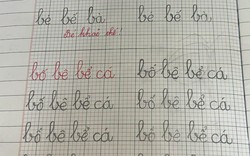 bé bế bà bé bế bà
bố bê bể cá bố bê bể cá
bố bê bể cá bố bê bể cá
bố bê bể cá bố bê bể cá